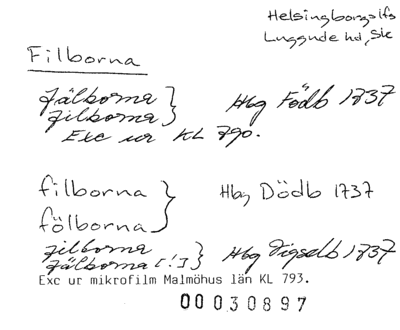 Helsingborgs lfs
Luggude hd, Sk
Filborna
Fälborna
Filborna
Hbg Födb 1737
Exc ur KL 790.
filborna
fölborna
Hbg Dödb 1737
Filborna
Fälborna [!]
Hbg Vigselb 1737
Exc ur mikrofilm Malmöhus län KL 793.
00030897